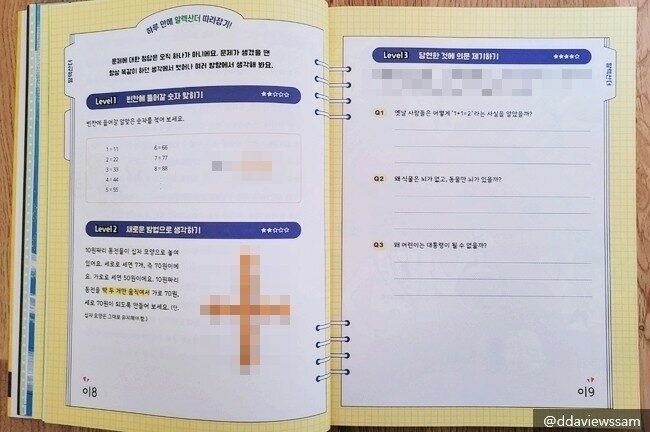 하루 만에 알렉산더 따라잡기!
알렉산더
문제에 대한 정답은 오직 하나가 아니에요. 문제가 생겼을 땐
항상 똑같이 하던 생각에서 벗어나 여러 방향에서 생각해 봐요.
Level 1 빈칸에 들어갈 숫자 맞히기 ★★☆☆☆
빈칸에 들어갈 알맞은 숫자를 적어 보세요.
1 = 11
2 = 22
3 = 33
4 = 44
5 = 55
6 = 66
7 = 77
8 = 88
Level 2 새로운 방법으로 생각하기 ★★☆☆☆
10원짜리 동전들이 십자 모양으로 놓여
있어요. 세로로 세면 7개, 즉 70원이에
요. 가로로 세면 50원이에요. 10원짜리
동전을 딱 두 개만 움직여서 가로 70원,
세로 70원이 되도록 만들어 보세요. (단,
십자 모양은 그대로 유지해야 함.)
이8
Level 3 당연한 것에 의문 제기하기 ★★★★☆
알렉산더
Q1 옛날 사람들은 어떻게 '1+1=2'라는 사실을 알았을까?
Q2 왜 식물은 뇌가 없고, 동물만 뇌가 있을까?
Q3 왜 어린이는 대통령이 될 수 없을까?
이9
@ddaviewssam